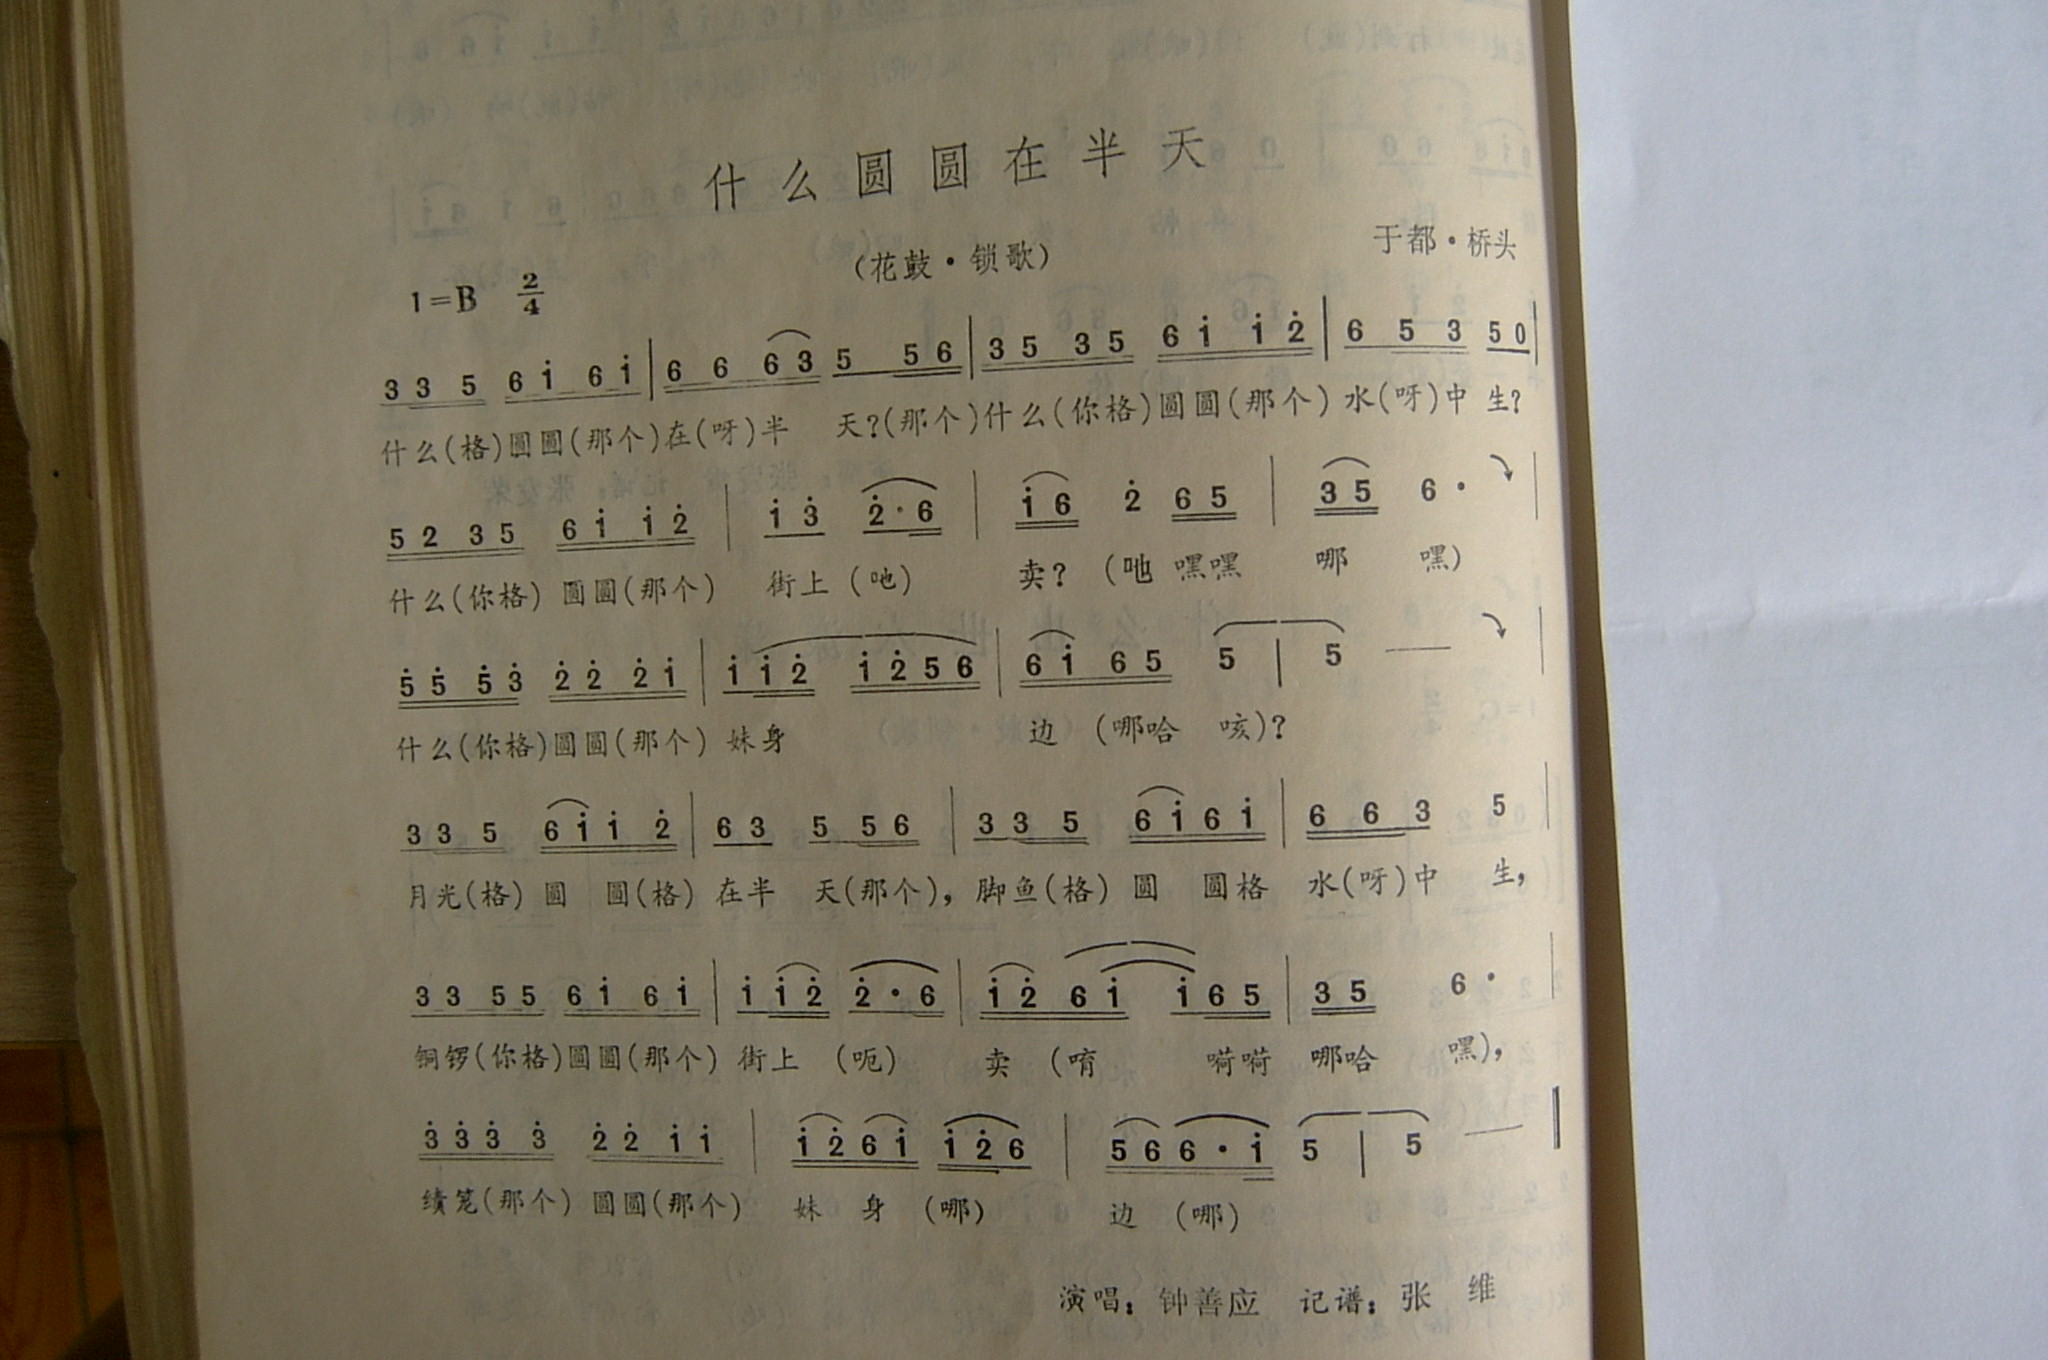 什么圆圆在半天
(花鼓·锁歌)
于都·桥头
1=B 2/4
3 3 5 6 i̇ 6 i̇ | 6 6 6 3 5 5 6 | 3 5 3 5 6 i̇ i̇ 2̇ | 6 5 3 5 0 |
什么(格)圆圆(那个)在(呀)半 天?(那个)什么(你格)圆圆(那个)水(呀)中 生?
5 2 3 5 6 i̇ i̇ 2̇ | i̇ 3̇ 2̇·6 | i̇ 6 2̇ 6 5 | 3 5 6· |
什么(你格)圆圆(那个) 街上(吔) 卖?(吔 嘿嘿 哪 嘿)
5̇ 5̇ 5̇ 3̇ 2̇ 2̇ 2̇ i̇ | i̇ i̇ 2̇ i̇ 2̇ 5 6 | 6 i̇ 6 5 5 | 5 — |
什么(你格)圆圆(那个) 妹身 边 (哪哈 咳)?
3 3 5 6 i̇ i̇ 2̇ | 6 3 5 5 6 | 3 3 5 6 i̇ 6 i̇ | 6 6 3 5 |
月光(格) 圆 圆(格) 在半 天(那个),脚鱼(格) 圆 圆格 水(呀)中 生,
3 3 5 5 6 i̇ 6 i̇ | i̇ i̇ 2̇ 2̇·6 | i̇ 2̇ 6 i̇ i̇ 6 5 | 3 5 6· |
铜锣(你格)圆圆(那个) 街上 (呃) 卖 (唷 嗬嗬 哪哈 嘿),
3̇ 3̇ 3̇ 3̇ 2̇ 2̇ i̇ i̇ | i̇ 2̇ 6 i̇ i̇ 2̇ 6 | 5 6 6·i̇ 5 | 5 — ‖
绩笼(那个) 圆圆(那个) 妹 身 (哪) 边 (哪)
演唱:钟善应 记谱:张 维